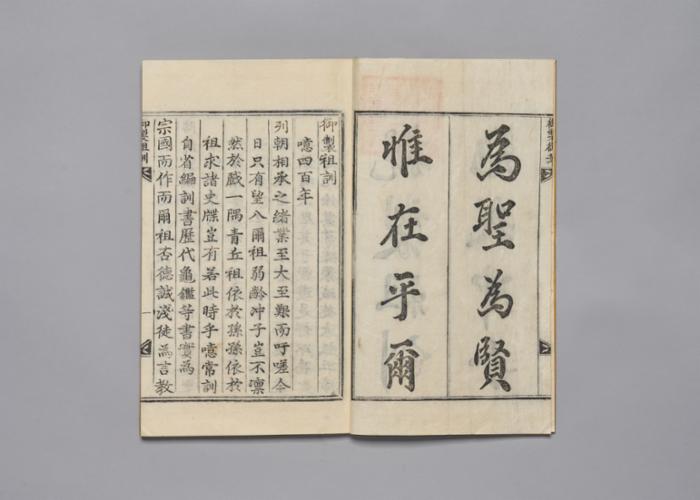 為聖為賢
惟在乎爾
御製祖訓
噫四百年
列朝相承之緒業至大至艱而吁嗟今
日只有望八爾祖弱齡沖子豈不凛
然於戲一隅青丘祖依於孫孫依於
祖求諸史牒豈有若此時乎噫常訓
自省編訓書歷代龜鑑等書實為
宗國而作而爾祖否德誠淺徒為言教
御製祖訓
一